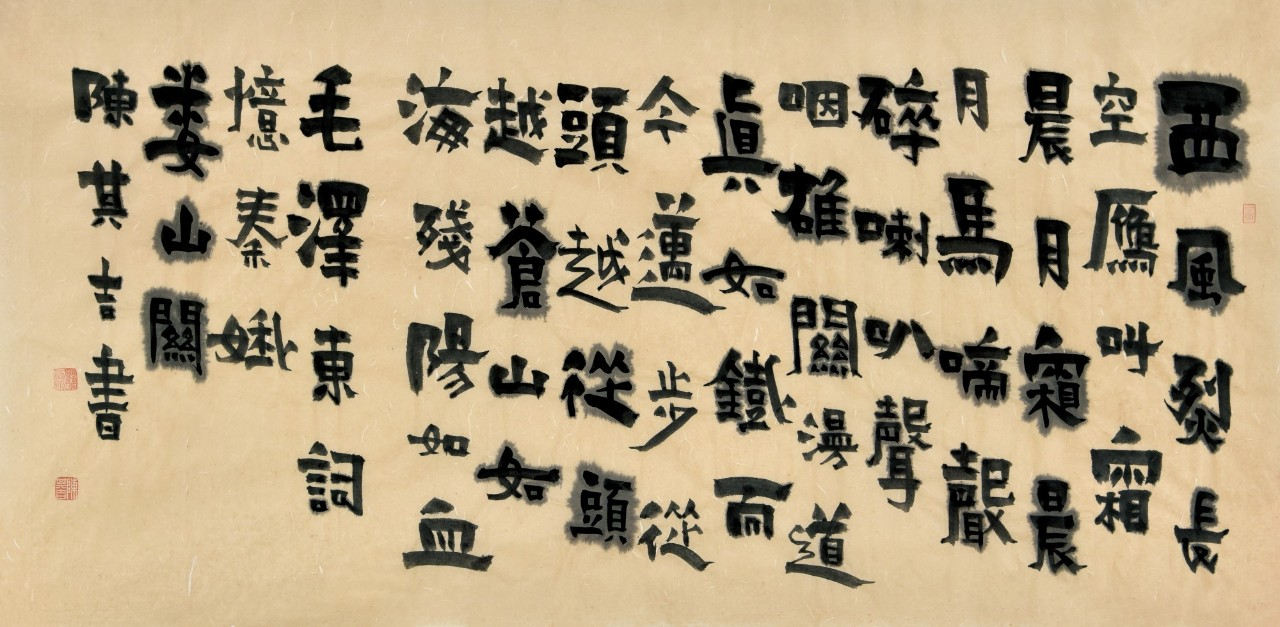 西風烈長
空鴈叫霜
晨月霜晨
月馬啼聲
碎喇叭聲
咽雄關漫道
眞如鐵而
今邁步從
頭越從頭
越蒼山如
海殘陽如血
毛澤東詞
憶秦娥
婁山關
陳其吉書